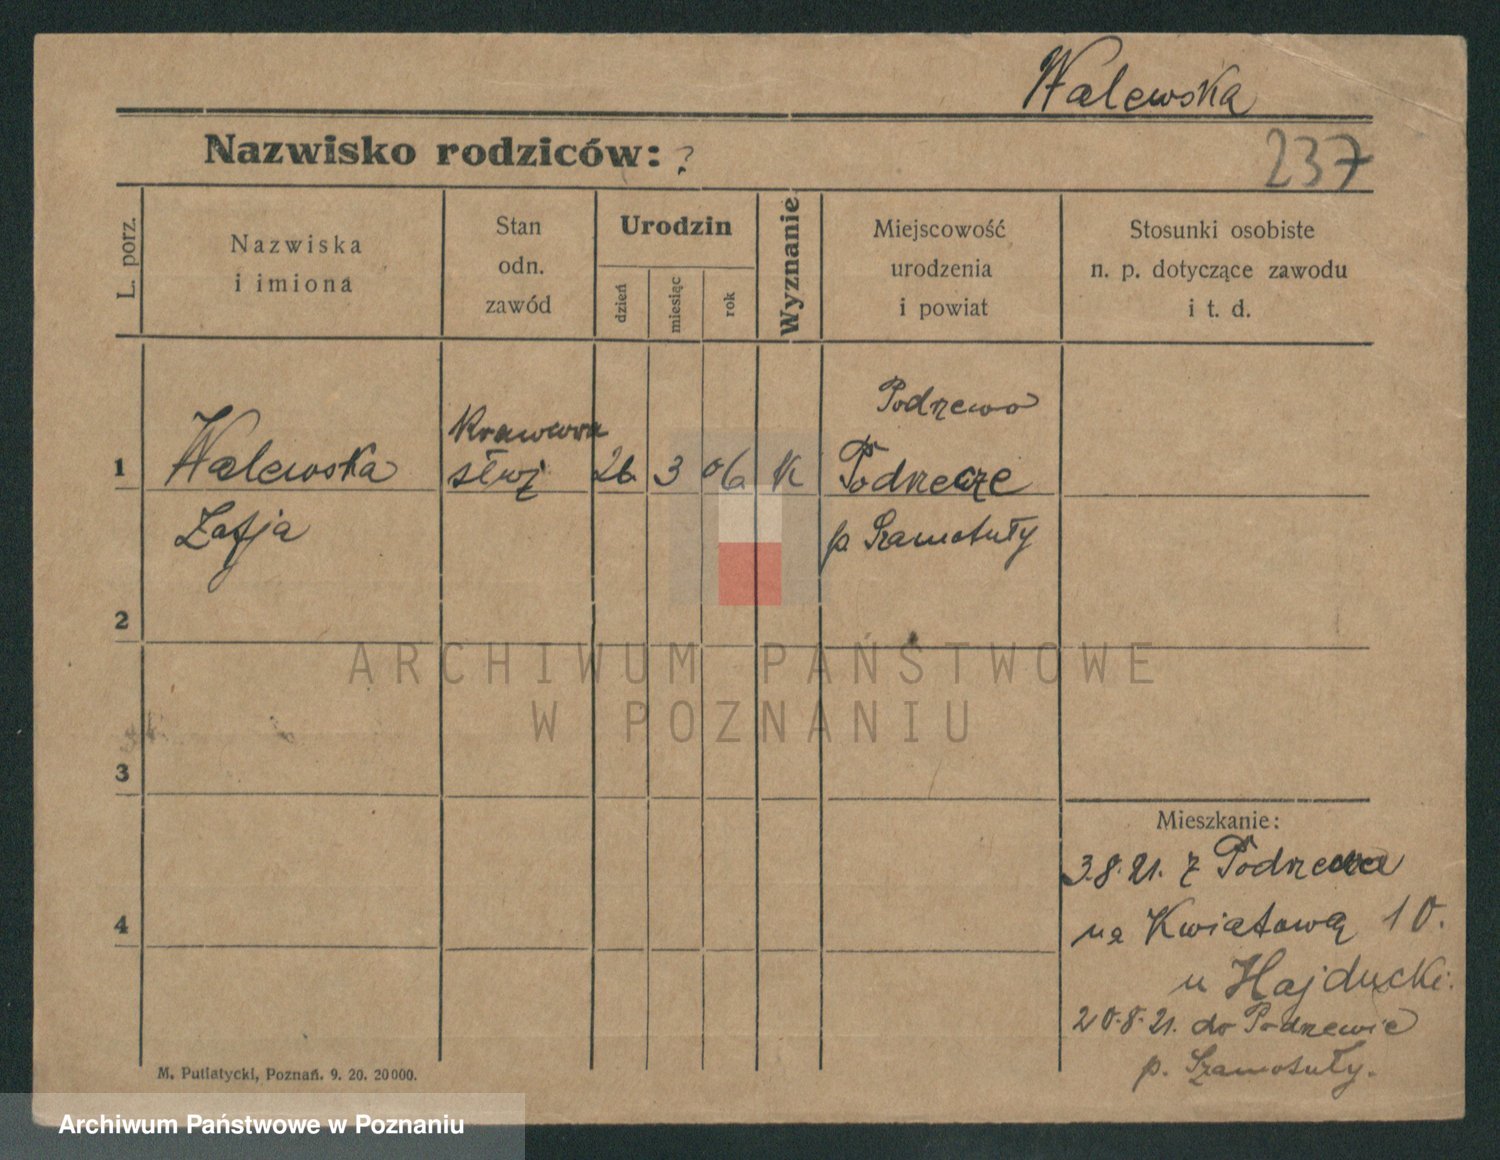 Walewska
Nazwisko rodziców: ?
237
L. porz.
Nazwiska
i imiona
Stan
odn.
zawód
Urodzin
dzień
miesiąc
rok
Wyznanie
Miejscowość
urodzenia
i powiat
Stosunki osobiste
n. p. dotyczące zawodu
i t. d.
1
Walewska
Zofja
26 3 06 K
Podrzewo
p Szamotuły
2
3
4
Mieszkanie:
3.8.21. z
na Kwiatową 10.
u Hajducki.
20.8.21. do Podrzewie
p. Szamotuły.
M. Putiatycki, Poznań. 9. 20. 20000.
ARCHIWUM PAŃSTWOWE
W POZNANIU
Archiwum Państwowe w Poznaniu